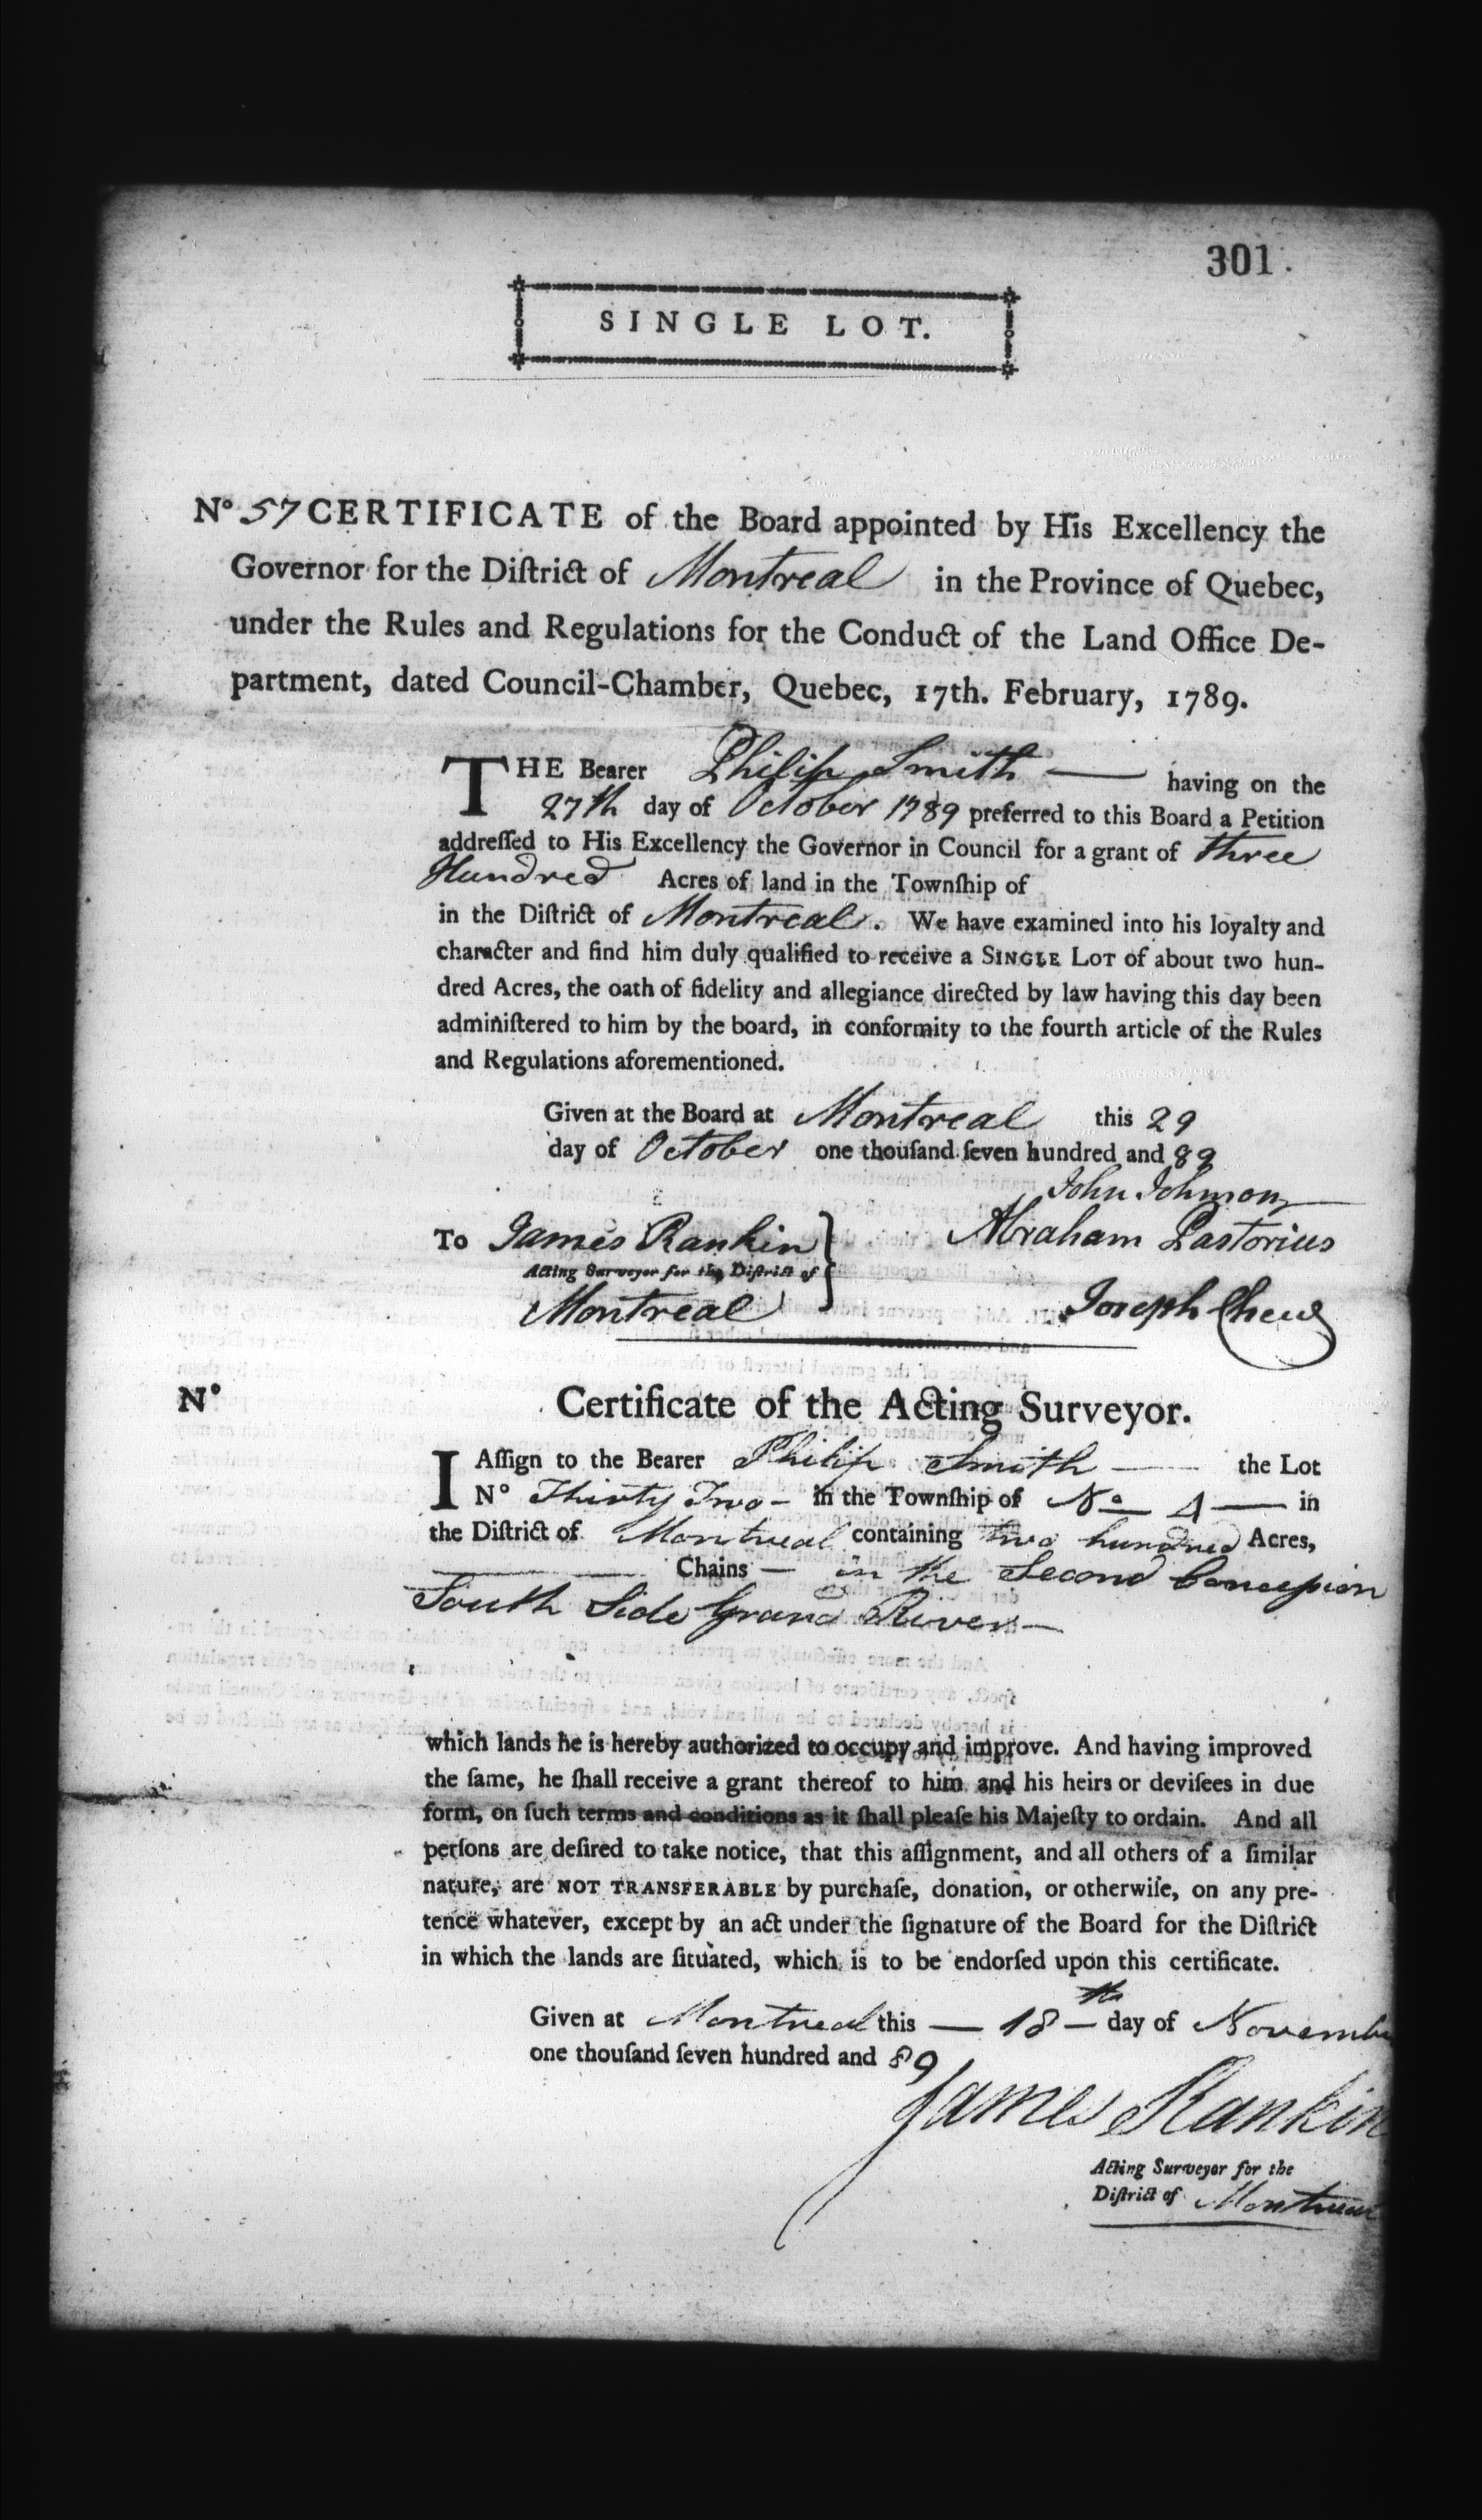 301.
SINGLE LOT.
No 57 CERTIFICATE of the Board appointed by His Excellency the
Governor for the Diſtrict of Montreal in the Province of Quebec,
under the Rules and Regulations for the Conduct of the Land Office De-
partment, dated Council-Chamber, Quebec, 17th. February, 1789.
THE Bearer Philip Smith — having on the
27th day of October 1789 preferred to this Board a Petition
addreſſed to His Excellency the Governor in Council for a grant of three
Hundred Acres of land in the Townſhip of
in the Diſtrict of Montreal. We have examined into his loyalty and
character and find him duly qualified to receive a SINGLE LOT of about two hun-
dred Acres, the oath of fidelity and allegiance directed by law having this day been
adminiſtered to him by the board, in conformity to the fourth article of the Rules
and Regulations aforementioned.
Given at the Board at Montreal this 29
day of October one thouſand ſeven hundred and 89
John Johnson
To James Rankin
Abraham Pastorius
Acting Surveyor for the Diſtrict of
Montreal
Joseph Chew
No Certificate of the Acting Surveyor.
I Aſſign to the Bearer Philip Smith — the Lot
No Thirty Two – in the Townſhip of No 4 — in
the Diſtrict of Montreal containing two hundred Acres,
Chains — in the Second Concession
South Side Grand River —
which lands he is hereby authorized to occupy and improve. And having improved
the ſame, he ſhall receive a grant thereof to him and his heirs or deviſees in due
form, on ſuch terms and conditions as it ſhall pleaſe his Majeſty to ordain. And all
perſons are deſired to take notice, that this aſſignment, and all others of a ſimilar
nature, are NOT TRANSFERABLE by purchaſe, donation, or otherwiſe, on any pre-
tence whatever, except by an act under the ſignature of the Board for the Diſtrict
in which the lands are ſituated, which is to be endorſed upon this certificate.
Given at Montreal this — 18th — day of Novembe
one thouſand ſeven hundred and 89
James Rankin
Acting Surveyor for the
Diſtrict of Montreal